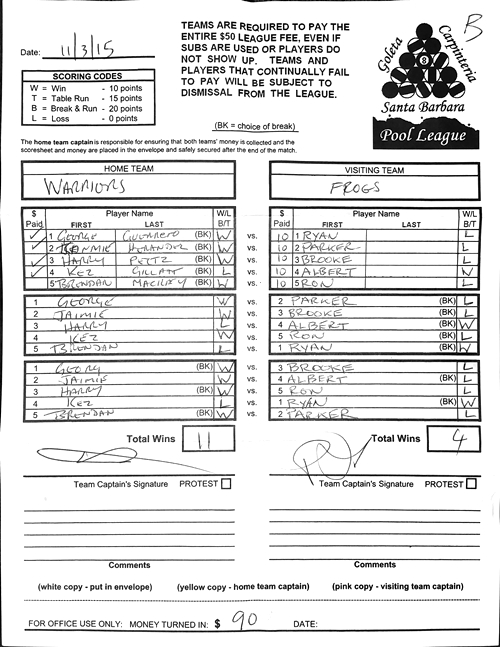 Date: 11/3/15
TEAMS ARE REQUIRED TO PAY THE
ENTIRE $50 LEAGUE FEE, EVEN IF
SUBS ARE USED OR PLAYERS DO
NOT SHOW UP. TEAMS AND
PLAYERS THAT CONTINUALLY FAIL
TO PAY WILL BE SUBJECT TO
DISMISSAL FROM THE LEAGUE.
B
Goleta
Carpinteria
Santa Barbara
Pool League
SCORING CODES
W = Win - 10 points
T = Table Run - 15 points
B = Break & Run - 20 points
L = Loss - 0 points
(BK = choice of break)
The home team captain is responsible for ensuring that both teams' money is collected and the
scoresheet and money are placed in the envelope and safely secured after the end of the match.
HOME TEAM VISITING TEAM
WARRIORS FROGS
$ Player Name W/L $ Player Name W/L
Paid FIRST LAST B/T Paid FIRST LAST B/T
1 GEORGE (BK) W vs. 10 1 RYAN L
2 (BK) W vs. 10 2 PARKER L
3 HARRY (BK) W vs. 10 3 BROOKE L
4 KEZ (BK) L vs. 10 4 ALBERT W
5 BRENDAN (BK) W vs. 10 5 RON L
1 GEORGE W vs. 2 PARKER (BK) L
2 JAIMIE W vs. 3 BROOKE (BK) L
3 HARRY L vs. 4 ALBERT (BK) W
4 KEZ W vs. 5 RON (BK) L
5 BRENDAN L vs. 1 RYAN (BK) W
1 (BK) W vs. 3 BROOKE L
2 JAIMIE W vs. 4 ALBERT (BK) L
3 HARRY (BK) W vs. 5 RON L
4 KEZ L vs. 1 RYAN (BK) W
5 BRENDAN (BK) W vs. 2 PARKER L
Total Wins 11 Total Wins 4
Team Captain's Signature PROTEST Team Captain's Signature PROTEST
Comments Comments
(white copy - put in envelope) (yellow copy - home team captain) (pink copy - visiting team captain)
FOR OFFICE USE ONLY: MONEY TURNED IN: $ 90 DATE: